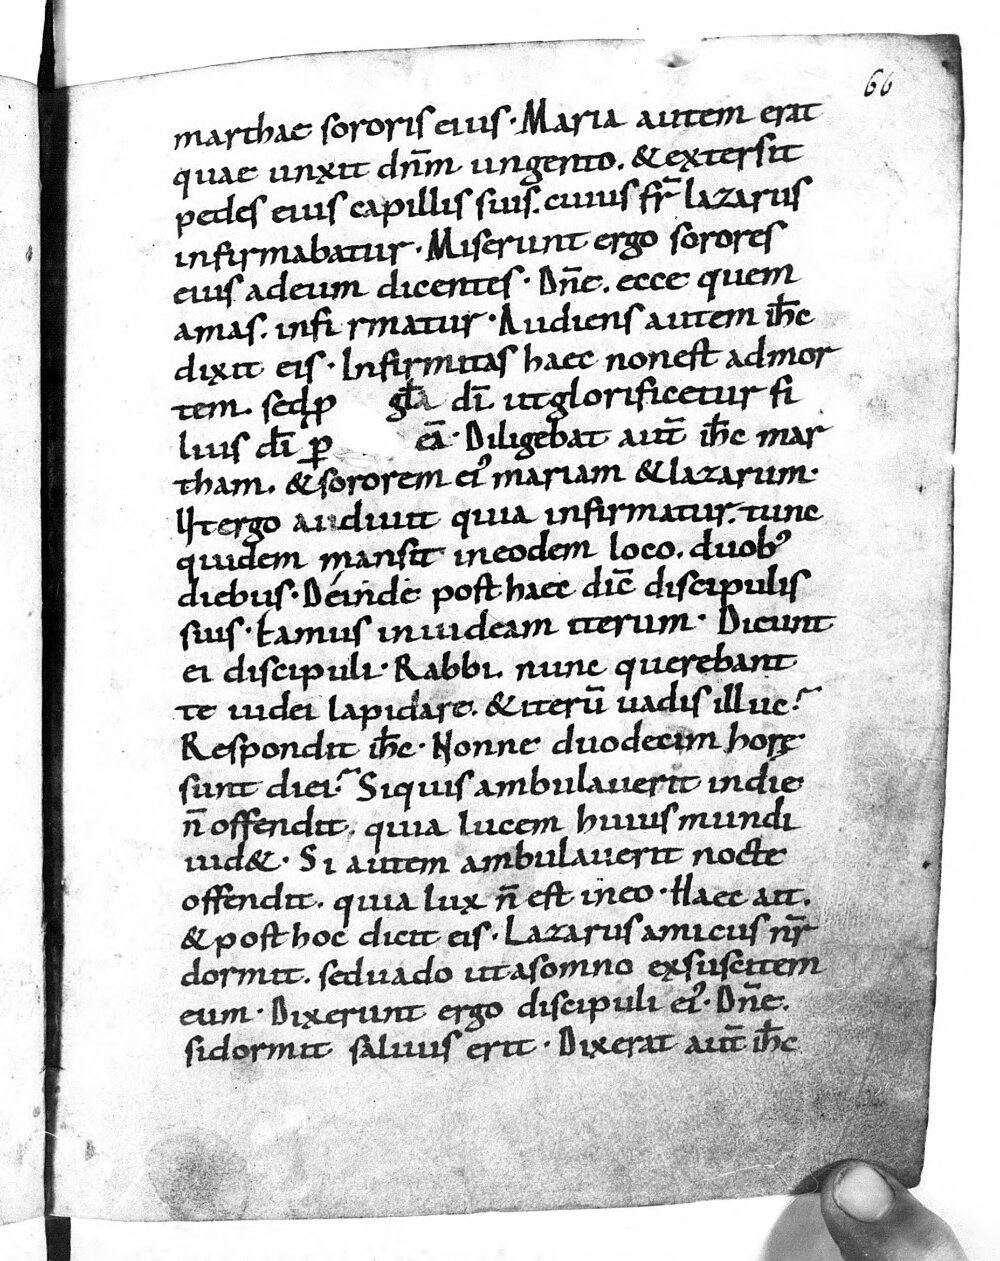 66
marthae sororis eius · Maria autem erat
quae unxit dnm̄ ungento . & extersit
pedes eius capillis suis . cuius fr̄ lazarus
infirmabatur · Miserunt ergo sorores
eius adeum dicentes · Dn̄e . ecce quem
amas . infirmatur · Audiens autem ih̄c
dixit eis · Infirmitas haec nonest admor
tem . sed ꝓ gl̄a dī utglorificetur fi
lius dī p̱ eā · Diligebat aut̄ ih̄c mar
tham . & sororem ei᾿ mariam & lazarum ·
Ut ergo audiuit quia infirmatur . tunc
quidem mansit ineodem loco . duob᾿
diebus · Deinde posthaec dic̄ discipulis
suis · Eamus iniudeam iterum · Dicunt
ei discipuli · Rabbi . nunc querebant
te iudei lapidare . & iterū uadis illuc ?
Respondit ih̄c · Nonne duodecim horę
sunt diei ? Siquis ambulauerit indie
n̄ offendit . quia lucem huius mundi
uid& · Si autem ambulauerit nocte
offendit . quia lux n̄ est ineo · Haec ait .
& posthoc dicit eis · Lazarus amicus nr̄
dormit . seduado utasomno exsuscitem
eum · Dixerunt ergo discipuli ei᾿ · Dn̄e .
sidormit saluus erit · Dixerat aut̄ ih̄c